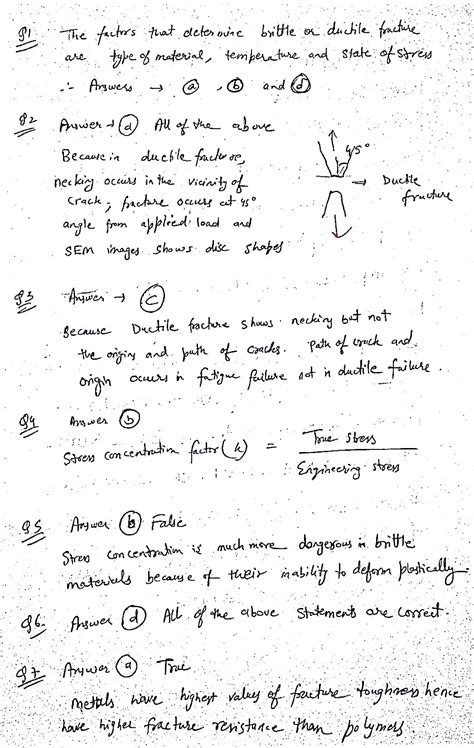 Q1 The factors that determine brittle or ductile fracture
are type of material, temperature and state of stress
∴ Answers → (a), (b) and (d)
Q2 Answer → (d) All of the above
Because in ductile fracture,
necking occurs in the vicinity of
crack; fracture occurs at 45°
angle from applied load and
SEM images shows disc shapes
45°
→ Ductile
fracture
Q3 Answer → (C)
Because Ductile fracture shows necking but not
the origin and path of cracks. Path of crack and
origin occurs in fatigue failure not in ductile failure.
Q4 Answer (b)
Stress concentration factor (k) = True stress / Engineering stress
Q5 Answer (b) False
Stress concentration is much more dangerous in brittle
materials because of their inability to deform plastically
Q6. Answer (d) All of the above statements are correct.
Q7 Answer (a) True
Mettals have highest values of fracture toughness hence
have higher fracture resistance than polymers.